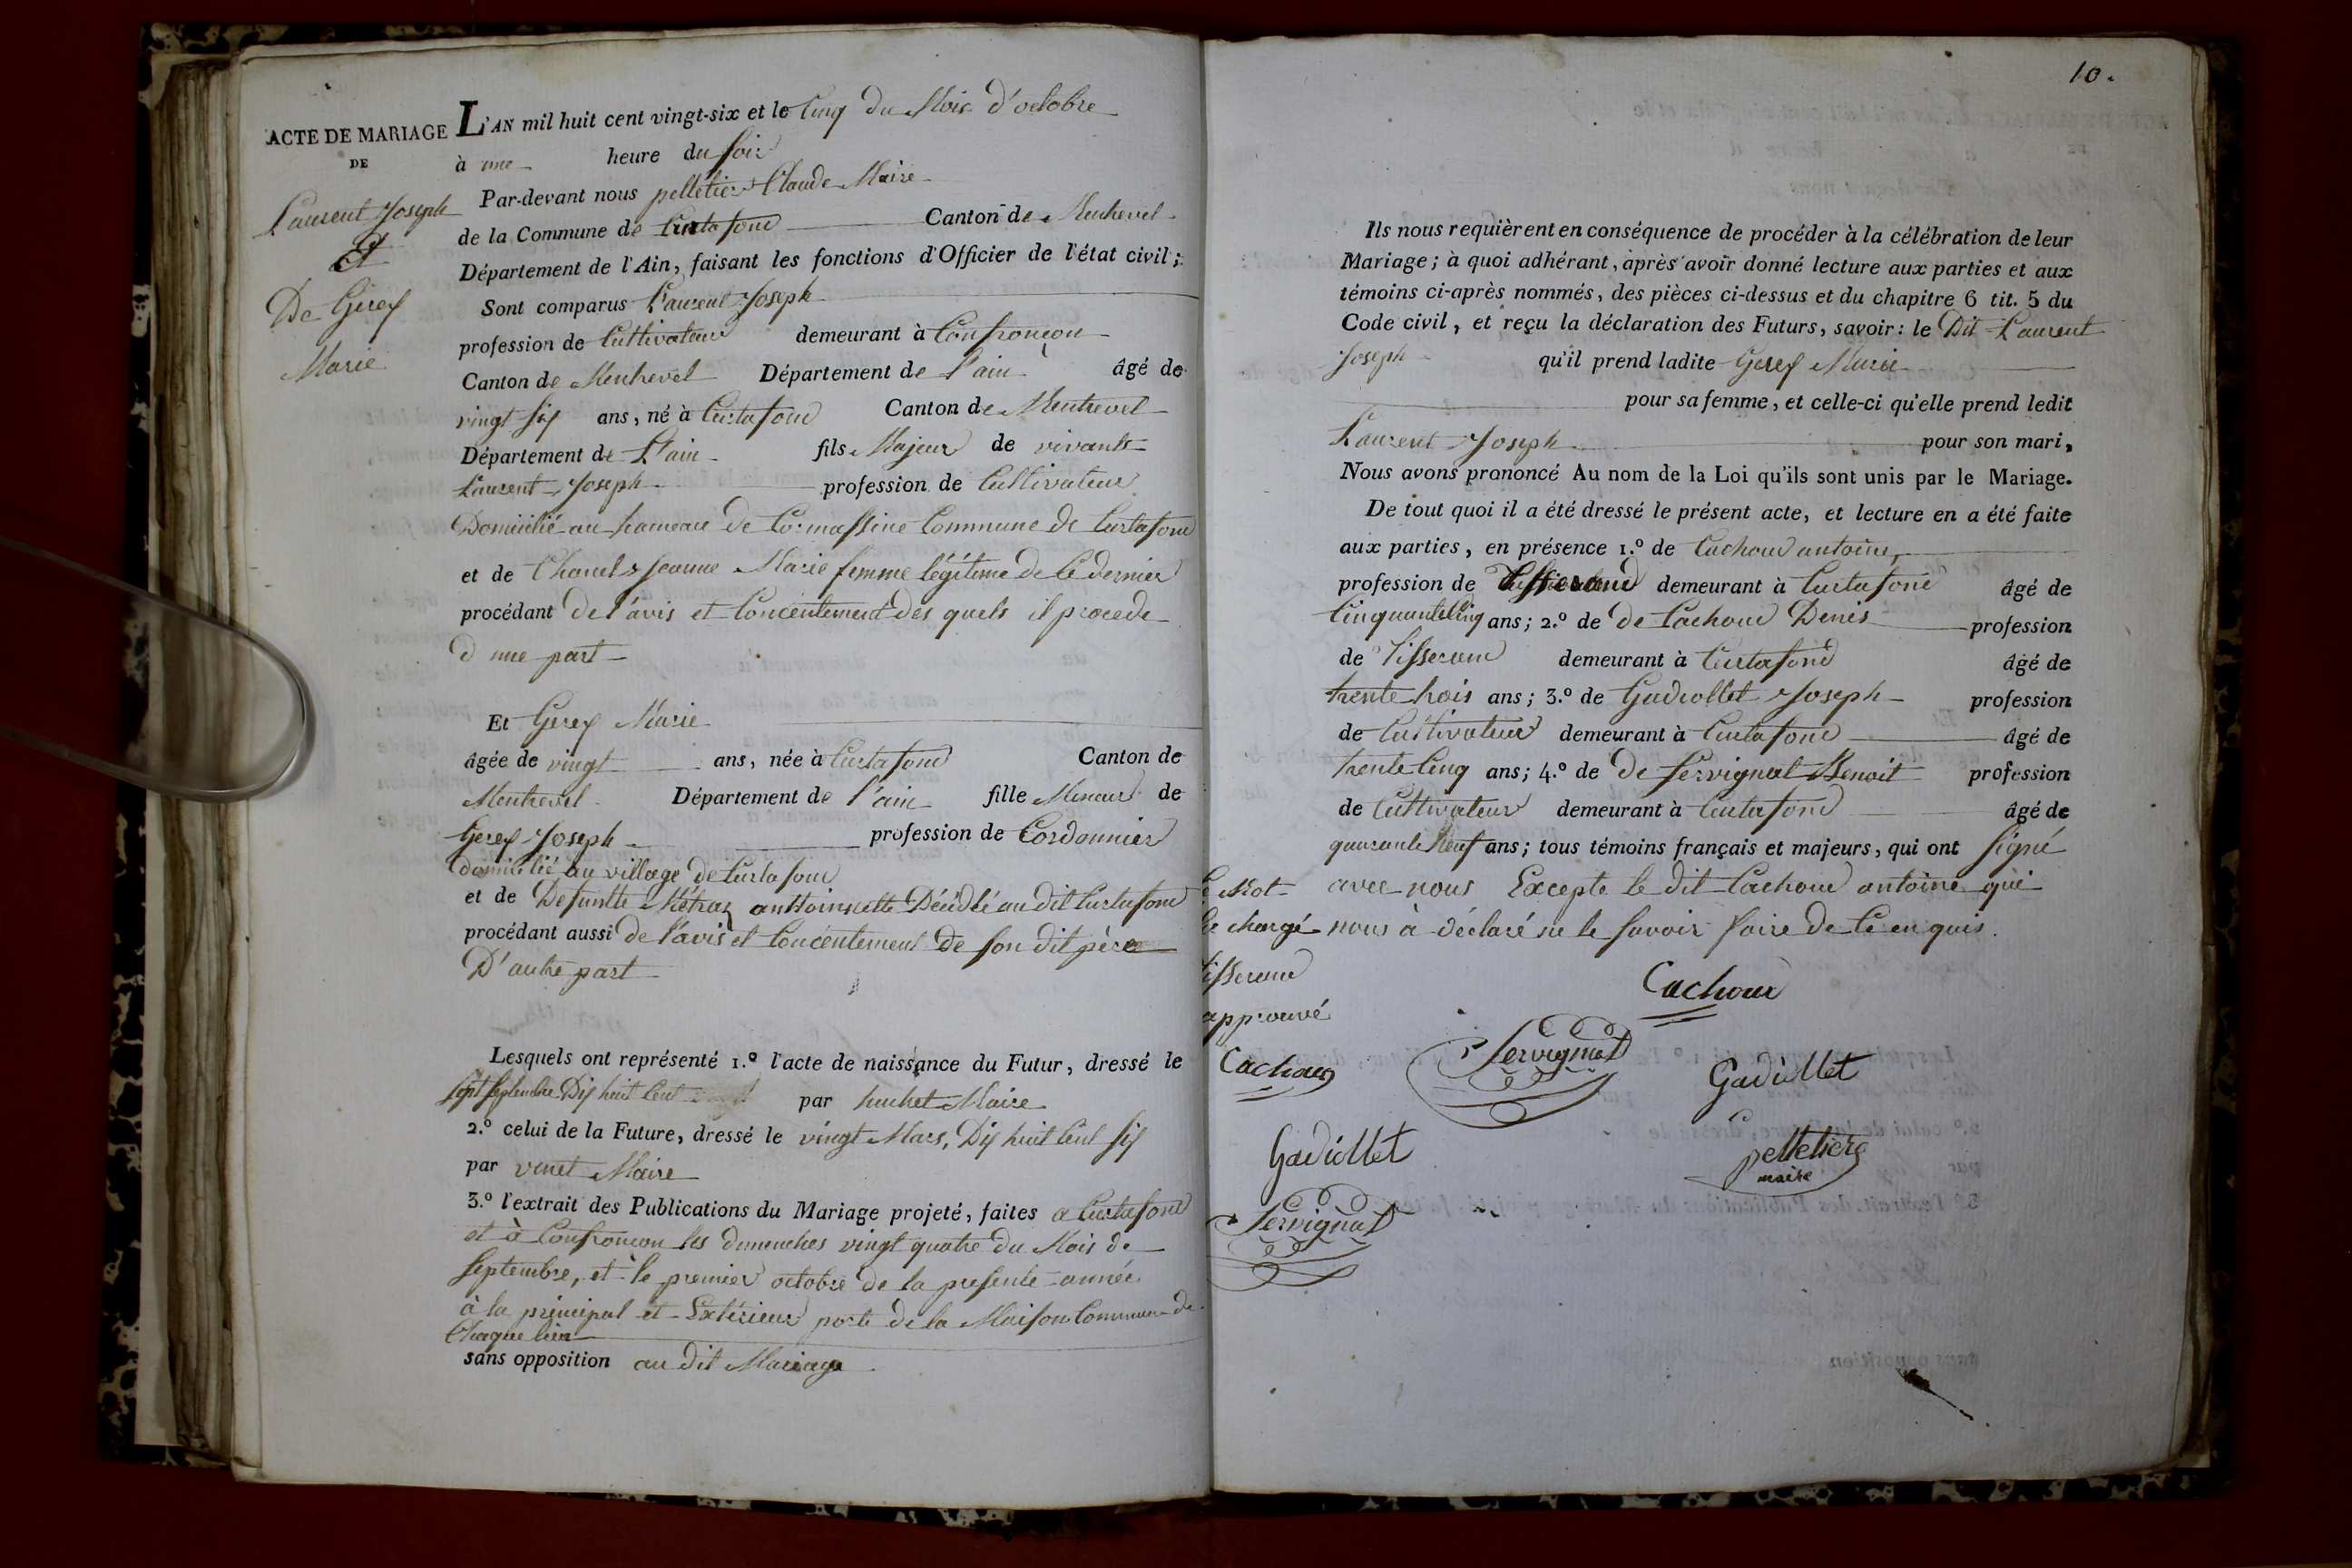 ACTE DE MARIAGE
DE
Laurent Joseph
Et
De Gerex
Marie
L'AN mil huit cent vingt-six et le Cinq du Mois d'octobre
à une heure du soir
Par-devant nous pelletier Claude Maire
de la Commune de Curtafond Canton de Montrevel
Département de l'Ain, faisant les fonctions d'Officier de l'état civil;
Sont comparus Laurent Joseph
profession de Cultivateur demeurant à Confrançon
Canton de Montrevel Département de l'ain âgé de
vingt six ans, né à Curtafond Canton de Montrevel
Département de L'ain fils Majeur de vivants
Laurent Joseph profession de Cultivateur
Domicilié au hameau de Cormassine Commune de Curtafond
et de Chanel Jeanne Marie femme légitime de Ce dernier
procédant de l'avis et Concentement des quels il procede
d'une part
Et Gerex Marie
âgée de vingt ans, née à Curtafond Canton de
Montrevel Département de l'ain fille Mineur de
Gerex Joseph profession de Cordonnier
domicilié au village de Curtafond
et de Defuntte Métraz anttoinnette Décédée au dit Curtafond
procédant aussi de l'avis et Concentement de son dit père
D'autre part
Lesquels ont représenté 1.º l'acte de naissance du Futur, dressé le
sept septembre Dix huit Cent par huchet Maire
2.º celui de la Future, dressé le vingt Mars, Dix huit Cent six
par venet Maire
3.º l'extrait des Publications du Mariage projeté, faites a Curtafond
et à Confrançon les dimenches vingt quatre du Mois de
septembre, et le premier octobre de la presente année
à la principal et Extérieur porte de la Maison Commune de
Chaque lieu
sans opposition au dit Mariage
10.
Ils nous requièrent en conséquence de procéder à la célébration de leur
Mariage; à quoi adhérant, après avoir donné lecture aux parties et aux
témoins ci-après nommés, des pièces ci-dessus et du chapitre 6 tit. 5 du
Code civil, et reçu la déclaration des Futurs, savoir: le Dit Laurent
Joseph qu'il prend ladite Gerex Marie
pour sa femme, et celle-ci qu'elle prend ledit
Laurent Joseph pour son mari,
Nous avons prononcé Au nom de la Loi qu'ils sont unis par le Mariage.
De tout quoi il a été dressé le présent acte, et lecture en a été faite
aux parties, en présence 1.º de Cachoud antoine,
profession de tisserand demeurant à Curtafond âgé de
Cinquante Cinq ans; 2.º de de Cachoud Denis profession
de tisserand demeurant à Curtafond âgé de
trente trois ans; 3.º de Gudiollet Joseph profession
de Cultivateur demeurant à Curtafond âgé de
trente Cinq ans; 4.º de De Servignat Benoit profession
de Cultivateur demeurant à Curtafond âgé de
quarante Neuf ans; tous témoins français et majeurs, qui ont signé
avec nous Excepte le dit Cachoud antoine qui
nous à déclaré ne le savoir faire de Ce en quis.
Le Mot
chargé
tisserand
approuvé
Cachoud
Servignat
Cachoud
Gadiollet
Gadiollet
pelletier
maire
Servignat